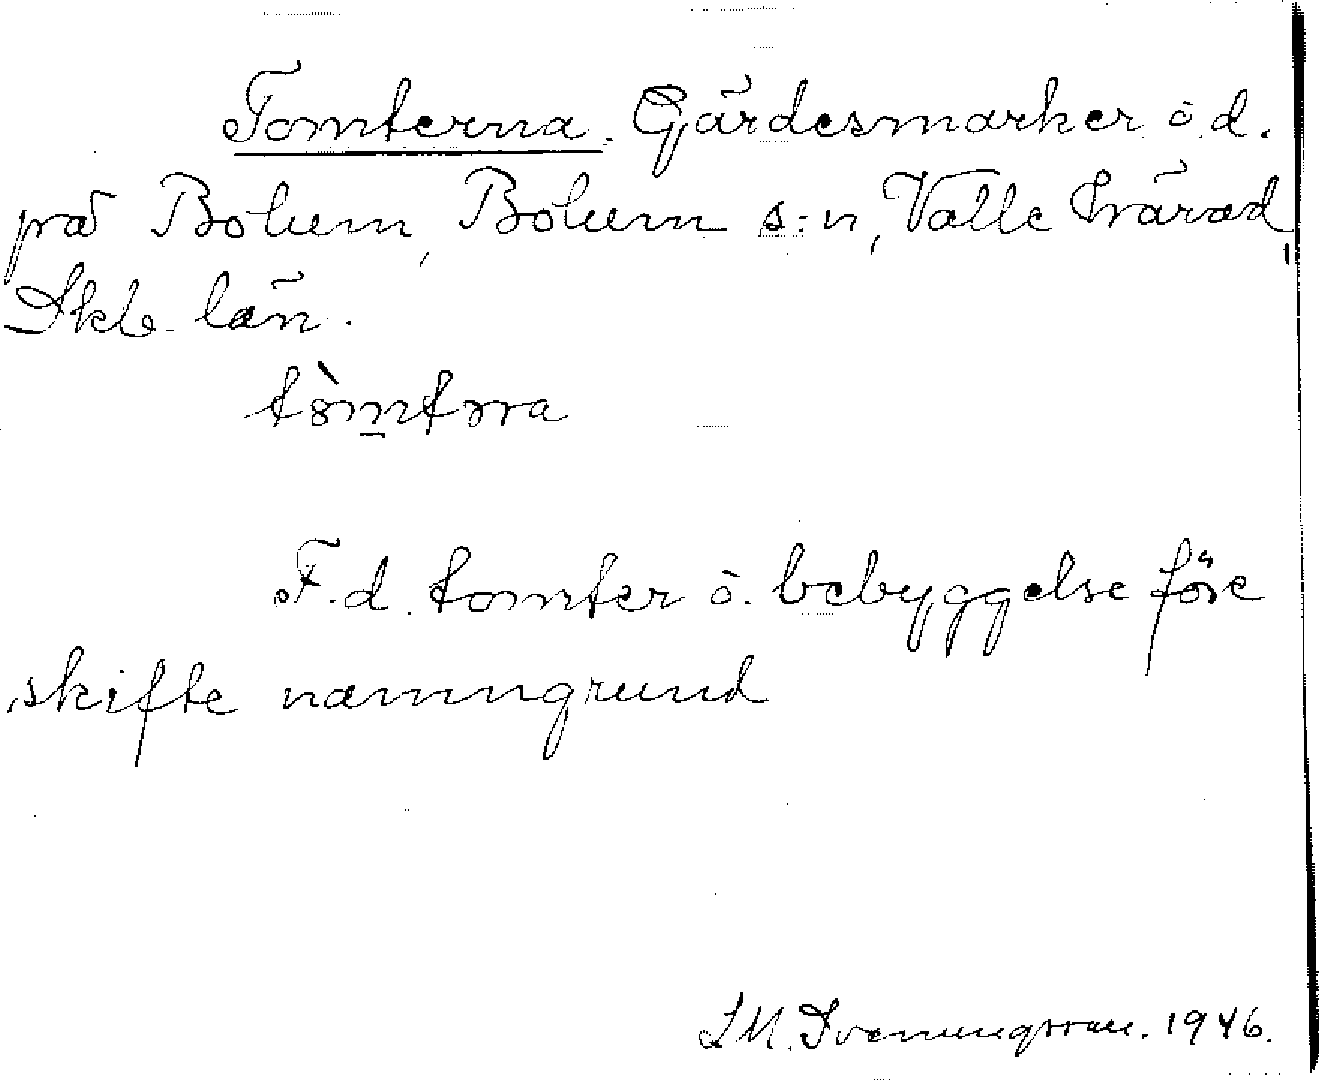 Tomterna. Gärdesmarker ö. d.
på Bolum, Bolum s:n, Valle härad,
Skb. län.
tòmtɷra
F. d. tomter o. bebyggelse före
skifte namngrund
S.M. Svenungsson. 1946.